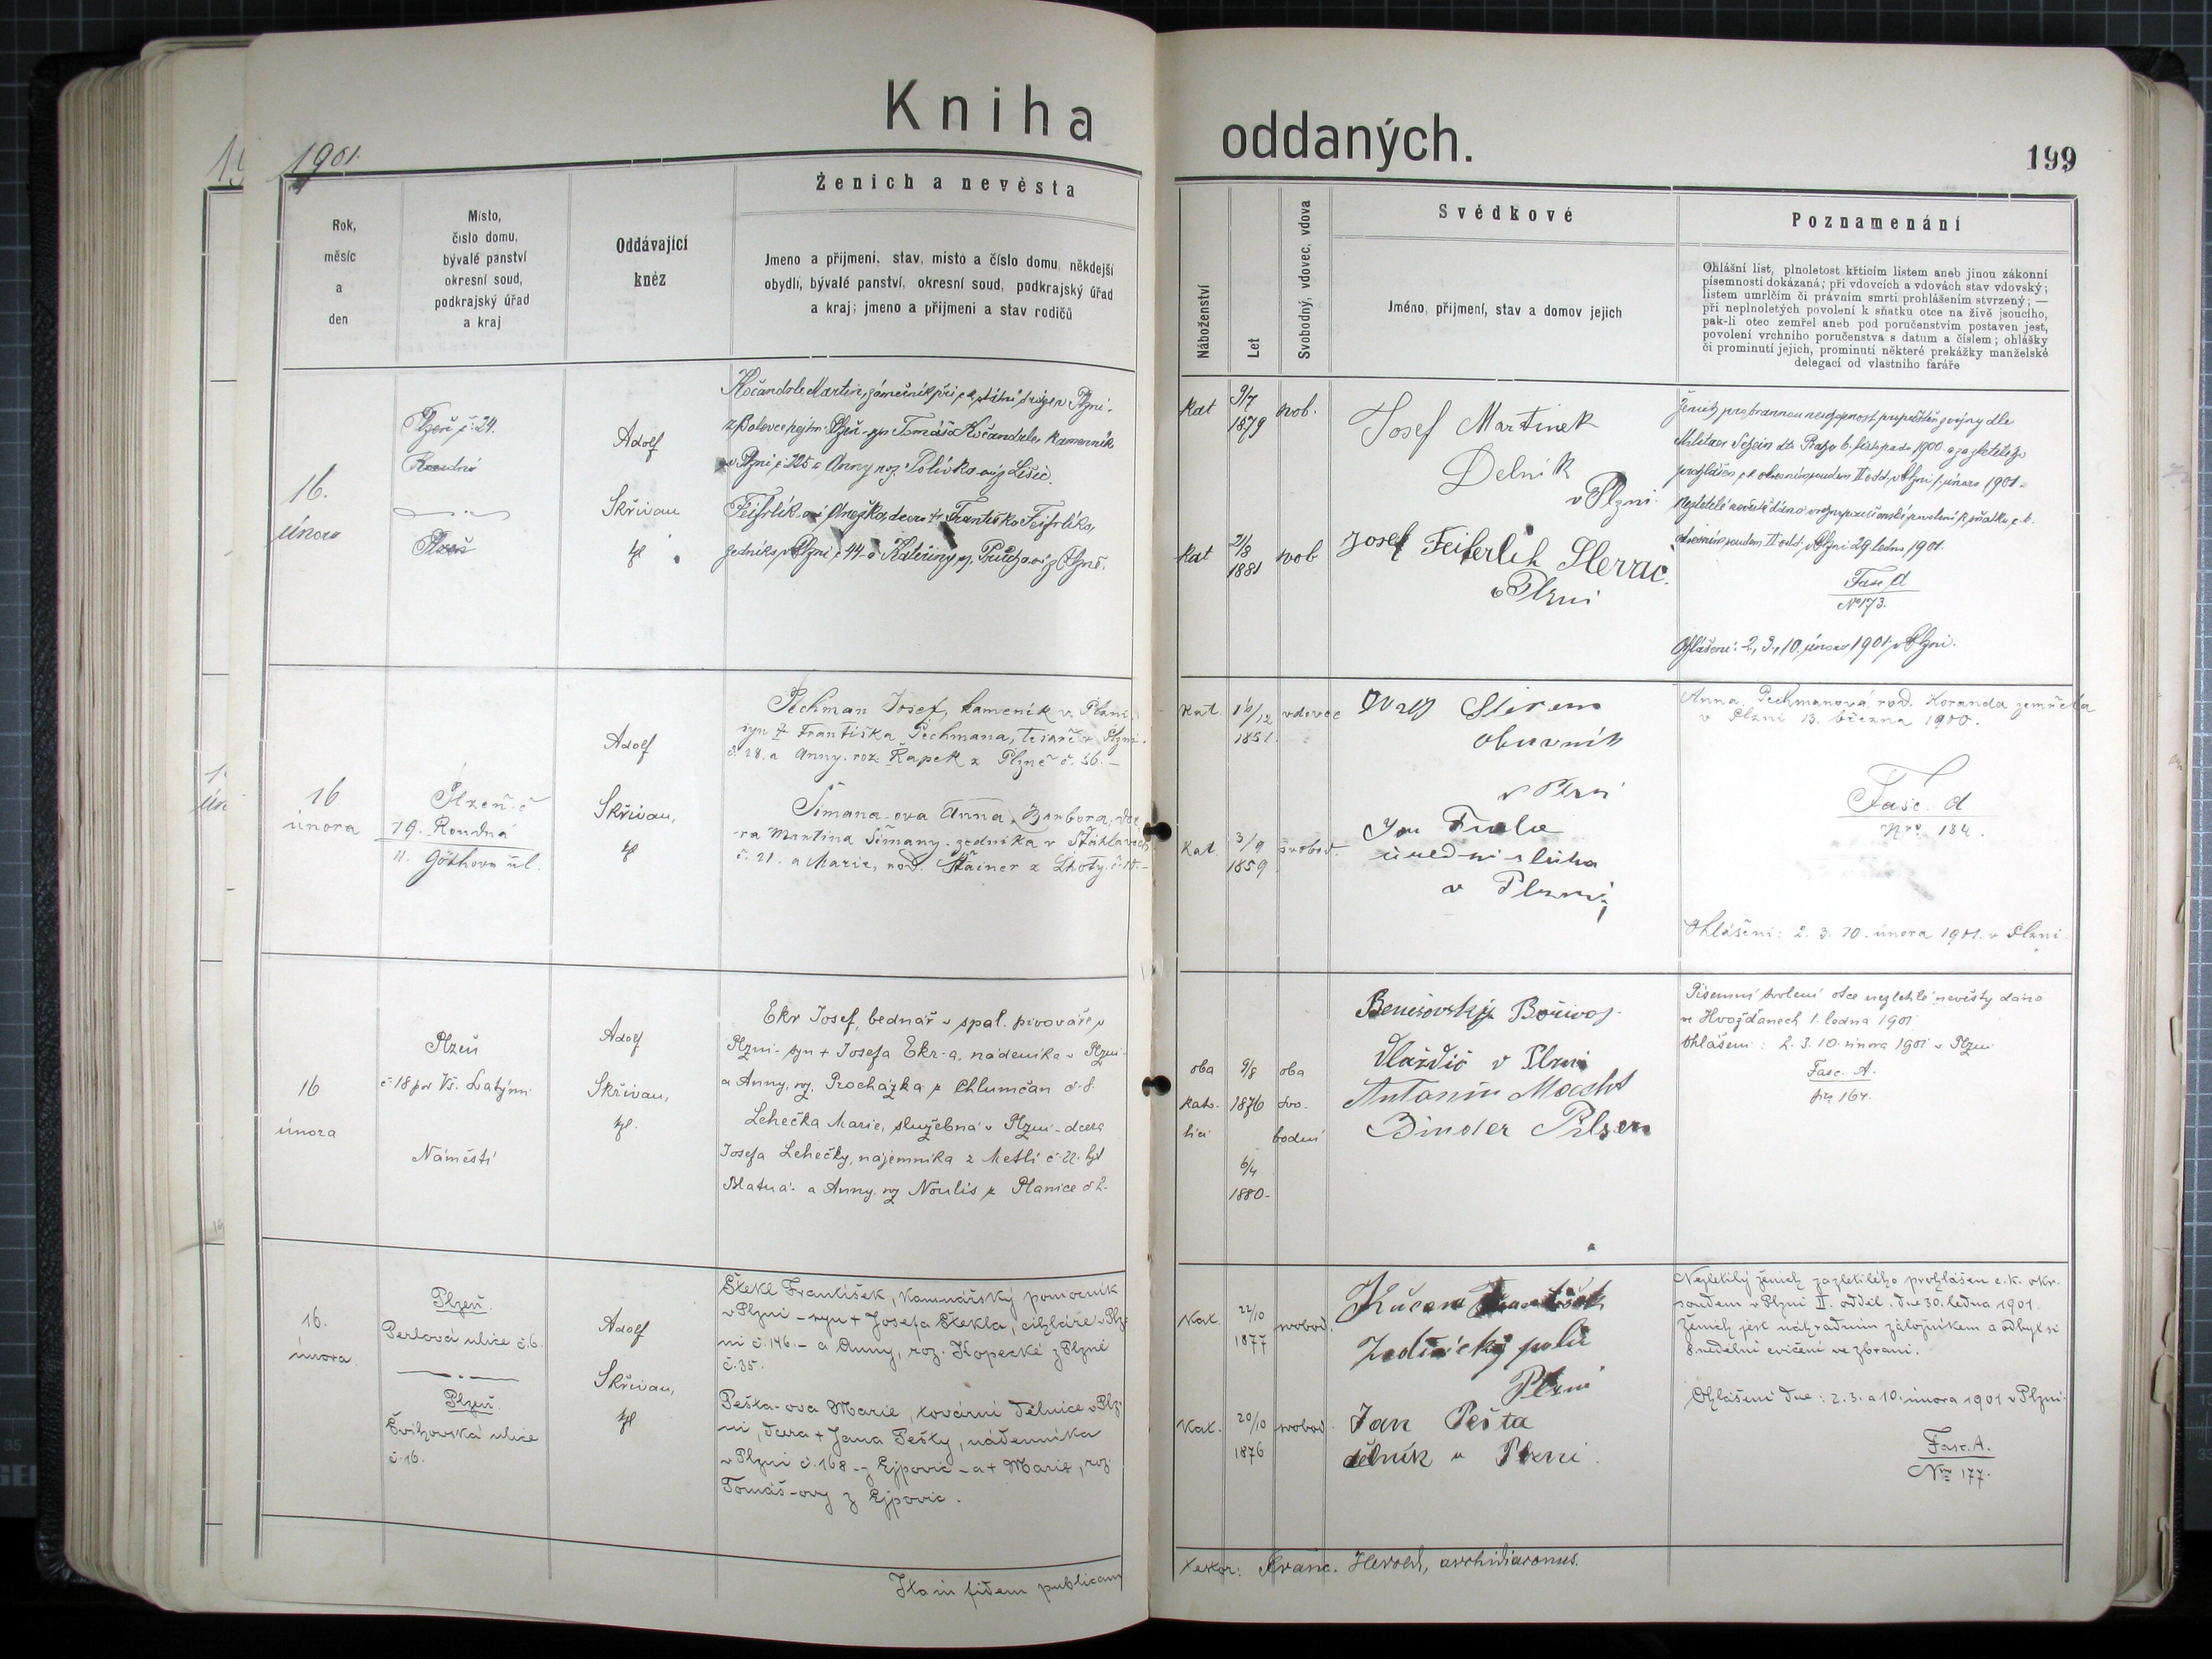 Kniha oddaných.
1901.
199
Ženich a nevěsta
Rok,
měsíc
a
den
Místo,
číslo domu,
bývalé panství
okresní soud,
podkrajský úřad
a kraj
Oddávající
kněz
Jmeno a přijmení, stav, místo a číslo domu, někdejší
obydlí, bývalé panství, okresní soud, podkrajský úřad
a kraj; jmeno a přijmeni a stav rodičů
Náboženství
Let
Svobodný, vdovec, vdova
Svědkové
Jméno, přijmení, stav a domov jejich
Poznamenání
Ohlášní list, plnoletost křticím listem aneb jinou zákonní
písemností dokázaná; při vdovcích a vdovách stav vdovský;
listem umrlčím či právním smrti prohlášením stvrzený; —
při neplnoletých povolení k sňatku otce na živě jsoucího,
pak-li otec zemřel aneb pod poručenstvím postaven jest,
povolení vrchního poručenstva s datum a číslem; ohlášky
či prominutí jejich, prominutí některé prekážky manželské
delegací od vlastního faráře
16.
února
Plzeň č. 24.
Roudná
Plzeň
Adolf
Skřivan
Kočandrle Martin, zámečník při c. k. státní dráze v Plzni,
z Bolevce syn Tomáše Kočandrle, kameník
v Plzni č. 225 a Anny roz. Polívka z Lišic.
Feifrlík-ová Anežka, dcera Františka Feifrlíka,
zedníka v Plzni č. 44 a Kateřiny z Plzně.
Kat
9/7
1879
svob.
Kat
21/3
1881
svob
Josef Martinek
Delník
v Plzni.
Josef Feiferlik
v Plzni
Praha 6. listopadu 1900
1. února 1901
v Plzni 29. ledna 1901.
Fasc d
No 173.
Ohlášení: 2., 3., 10. února 1901 v Plzni.
16
února
Plzeň č
19. Roudná
11. Göthova ul.
Adolf
Skřivan,
Pechman Josef, kameník v Plzni,
syn † Františka Pechmana, tesaře v Plzni
č. 28. a Anny. roz. Kapek z Plzně č. 56. —
Šimana-ova Anna, Barbora, dce-
ra Martina Šimany, zedníka v Šťáhlavech
č. 21. a Marie, rod. Štainer z Lhoty č. 10. —
Kat.
16/12
1851.
vdovec
Kat.
3/9
1859
svobod.
obuvník
v Plzni
Jan
úřední sluha
v Plzni
Anna Pechmanová rod. Koranda zemřela
v Plzni 13. března 1900.
Fasc. d
Nro. 184.
Ohlášení: 2. 3. 10. února 1901. v Plzni.
16
února
Plzeň
č 18 per Vš. Latýnu
Náměstí
Adolf
Skřivan,
Ekr Josef, bednář v spol. pivováře v
Plzni - syn † Josefa Ekr-a, nádeníka v Plzni
a Anny, roz. Procházka z Chlumčan č. 8.
Lehečka Marie, služebná v Plzni - dcera
Josefa Lehečky, nájemníka z Metlí č. 22. hjt
Blatná - a Anny roz Noulis z Planice č 2.
oba
kato-
líci
9/8
1876
6/4
1880-
oba
svo-
bodní
Benešovský Bořivoj
Dlaždič v Plzni
Antonín Macht
Binder Pilsen
Písemní svolení otce nezletilé nevěsty dáno
ve Hvožďanech 1. ledna 1901
Ohlášení: 2. 3. 10. února 1901 v Plzni
Fasc. A.
Nro 164.
16.
února
Plzeň.
Perlová ulice č. 6.
Plzeň.
Švihovská ulice
č. 16.
Adolf
Skřivan,
Štekl František, kamnářský pomocník
v Plzni - syn † Josefa Štekla, cihláře v Plz-
ni č. 146. - a Anny, roz. Kopecké z Plzně
č. 35.
Pešta-ova Marie, tovární dělnice v Plz-
ni, dcera † Jana Pešty, nádenníka
v Plzni č. 168 - z Ejpovic - a † Marie, roz.
Tomáš-ovy z Ejpovic.
Kat.
22/10
1877
svobod.
Kat.
20/10
1876
svobod
Kučera František
Zednický polír
Plzni
Jan Pešta
dělník v Plzni.
Nezletilý ženich za zletilého prohlášen c. k. okr.
soudem v Plzni II. odděl. dne 30. ledna 1901.
Ženich jest náhradním záložníkem a odbyl si
8. nedělní cvičení ve zbrani.
Ohlášení dne: 2. 3. a 10. února 1901 v Plzni.
Fasc. A.
Nro 177.
Ita in fidem publicam
testor: Franc. Herold, archidiaconus.